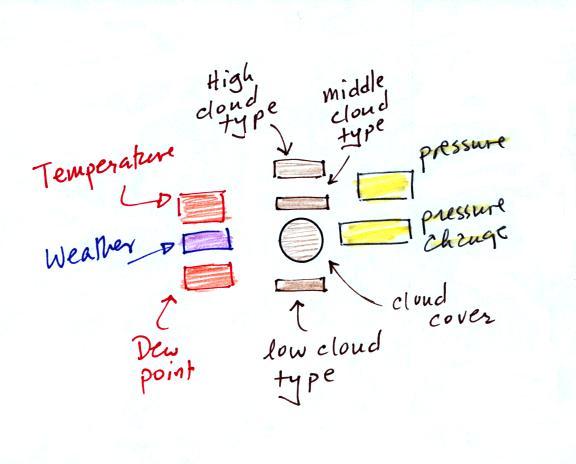 High
cloud
type
middle
cloud
type
Temperature
pressure
Weather
pressure
change
cloud
cover
Dew
point
low cloud
type